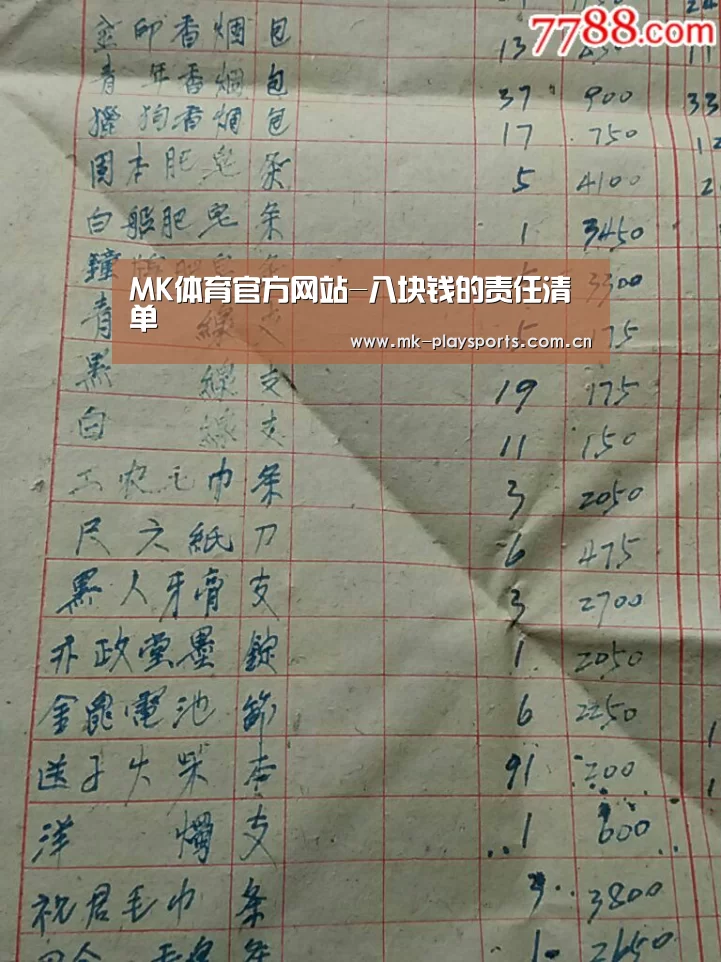 7788.com
金印香烟包 13
青年香烟包 37 900 33
猎狗香烟包 17 750 12
固本肥皂条 5 4100 2
白船肥皂条 1 3450
鐘 3300
MK体育官方网站-八块钱的责任清
单
www.mk-playsports.com.cn
青 線支 5 175
黑 線支 19 175
白 線支 11 150
工农毛巾条 3 2050
尺六紙刀 6 475
黑人牙膏支 3 2700
政堂墨錠 1 2050
金龍電池節 6 2250
送子火柴 91 200
洋 燭支 1 600
祝君毛巾条 3800
1 2650